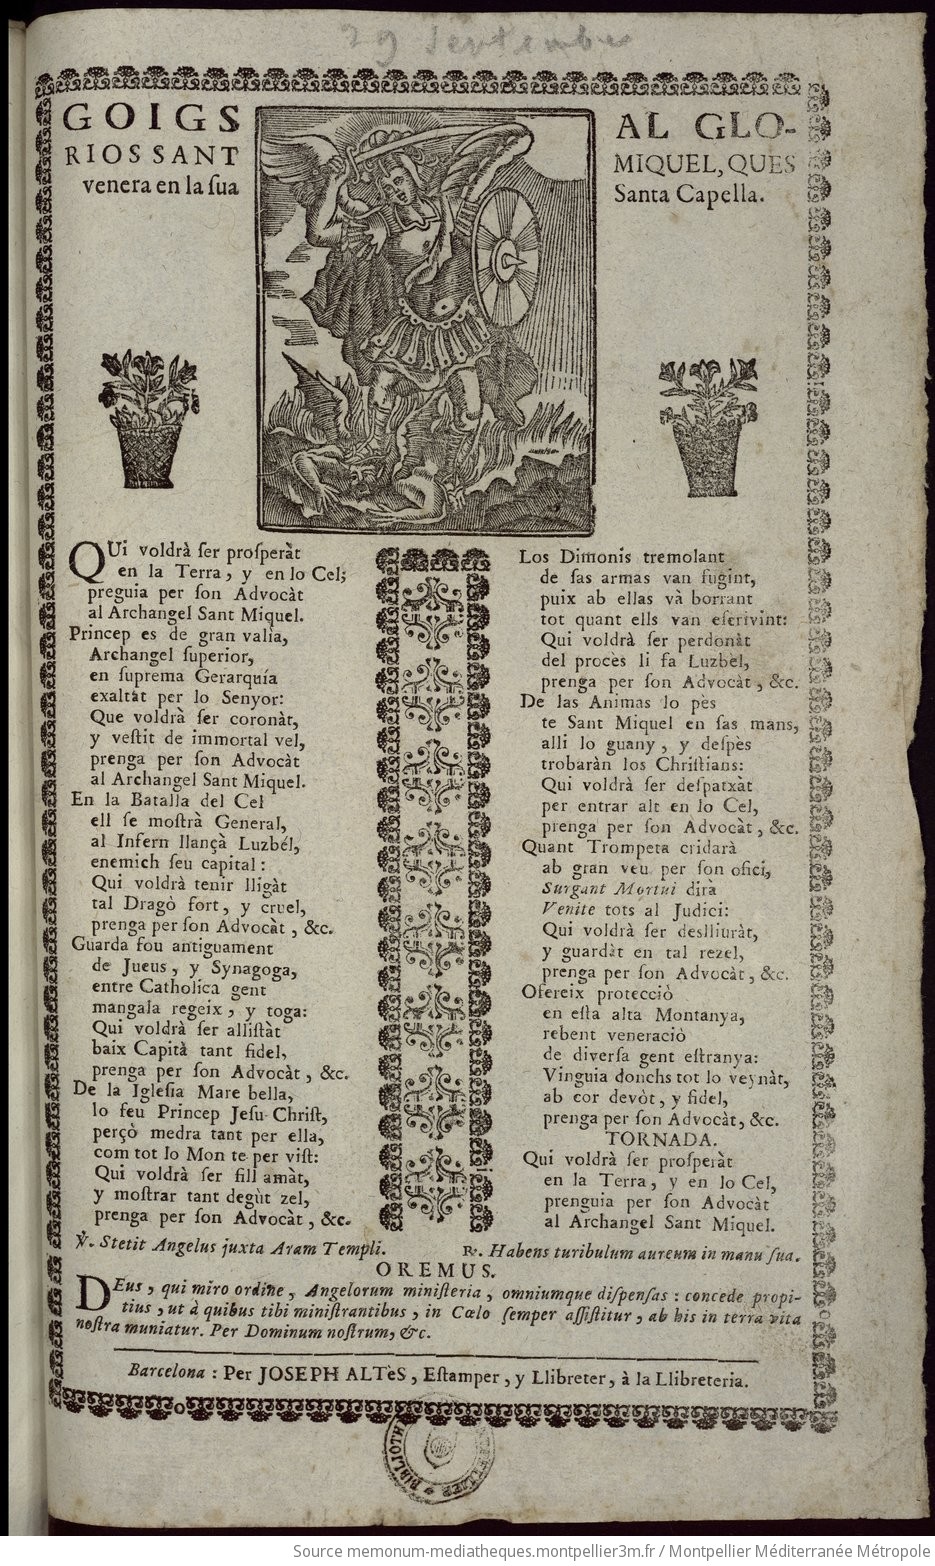 29 Septembre
GOIGS AL GLO-
RIOS SANT MIQUEL, QUES
venera en la ſua Santa Capella.
QUi voldrà ſer proſperàt
en la Terra, y en lo Cel;
preguia per ſon Advocàt
al Archangel Sant Miquel.
Princep es de gran valia,
Archangel ſuperior,
en ſuprema Gerarquía
exaltàt per lo Senyor:
Que voldrà ſer coronàt,
y veſtit de immortal vel,
prenga per ſon Advocàt
al Archangel Sant Miquel.
En la Batalla del Cel
ell ſe moſtrà General,
al Infern llançà Luzbél,
enemich ſeu capital:
Qui voldrà tenir lligàt
tal Dragò fort, y cruel,
prenga per ſon Advocàt, &c.
Guarda fou antiguament
de Jueus, y Synagoga,
entre Catholica gent
mangala regeix, y toga:
Qui voldrà ſer alliſtàt
baix Capità tant fidel,
prenga per ſon Advocàt, &c.
De la Igleſia Mare bella,
lo ſeu Princep Jeſu-Chriſt,
perçò medra tant per ella,
com tot lo Mon te per viſt:
Qui voldrà ſer fill amàt,
y moſtrar tant degùt zel,
prenga per ſon Advocàt, &c.
Los Dimonis tremolant
de ſas armas van fugint,
puix ab ellas và borrant
tot quant ells van eſcrivint:
Qui voldrà ſer perdonàt
del procès li fa Luzbel,
prenga per ſon Advocàt, &c.
De las Animas lo pès
te Sant Miquel en ſas mans,
alli lo guany, y deſpès
trobaràn los Chriſtians:
Qui voldrà ſer deſpatxàt
per entrar alt en lo Cel,
prenga per ſon Advocàt, &c.
Quant Trompeta cridarà
ab gran veu per ſon ofici,
Surgant Mortui dirà
Venite tots al Judici:
Qui voldrà ſer deslliuràt,
y guardàt en tal rezel,
prenga per ſon Advocàt, &c.
Ofereix protecciò
en eſta alta Montanya,
rebent veneraciò
de diverſa gent eſtranya:
Vinguia donchs tot lo veynàt,
ab cor devòt, y fidel,
prenga per ſon Advocàt, &c.
TORNADA.
Qui voldrà ſer proſperàt
en la Terra, y en lo Cel,
prenguia per ſon Advocàt
al Archangel Sant Miquel.
℣. Stetit Angelus juxta Aram Templi. ℟. Habens turibulum aureum in manu ſua.
OREMUS.
DEus, qui miro ordine, Angelorum miniſteria, omniumque diſpenſas: concede propi-
tius, ut à quibus tibi miniſtrantibus, in Cœlo ſemper aſſiſtitur, ab his in terra vita
noſtra muniatur. Per Dominum noſtrum, &c.
Barcelona: Per JOSEPH ALTèS, Eſtamper, y Llibreter, à la Llibreteria.
Source memonum-mediatheques.montpellier3m.fr / Montpellier Méditerranée Métropole